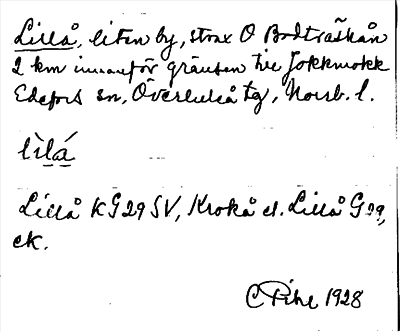 Lillå, liten by, strax O Bodträskån
2 km innanför gränsen till Jokkmokk
Edefors sn, Överluleå tg, Norrb. l.
lìlá
Lillå KG29 SV, Krokå el. Lillå G29,
ek.
C Pihl 1928